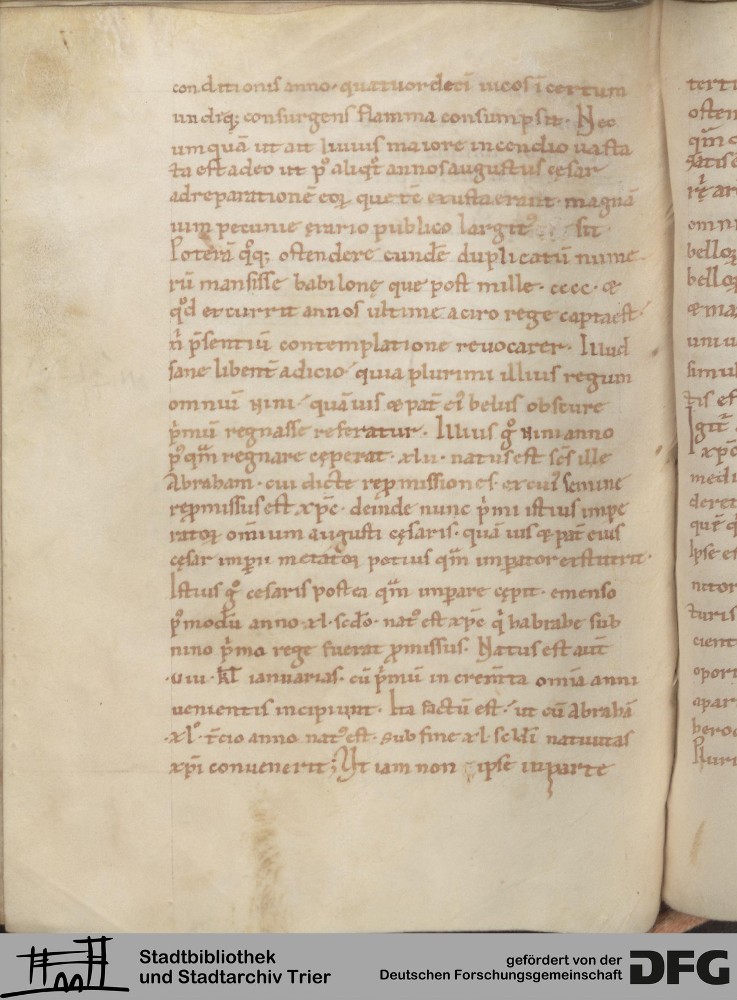 conditionis anno· quatuordecī uicos īcertum
undiq; consurgens flamma consumpsit· Nec
umquā ut ait liuius maiore incendio uasta
ta est adeo ut p̄ aliqt̄ annos augustus cęsar
ad reparationē eoꝝ que tc̄ exusta erant· magnā
uim pecunie erario publico largit᷒ sit
Poterā qq; ostendere eundē duplicatū nume
rū mansisse babilonę que post mille· cccc· &
qd̄ excurrit annos ultime a ciro rege capta est·
n̄ p̄sentiū contemplatione reuocarer· Illud
sane libent̄ adicio· quia plurimi illius regum
omniū nini· quāuis & pat̄ ei᷒ belus obscure
p̄mū regnasse referatur· Illius g̊ nini anno
p᷒qm̄ regnare cęperat· xlii· natus est scs̄ ille
Abraham· cui dicte repmissiones· ex cui᷒ semine
repmissus est xp̄c· deinde nunc p̄mi istius impe
ratoꝝ omīum augusti cęsaris· quāuis & pat̄ eius
cęsar imperii metatoꝝ potius qm̄ imp̄ator extiterit·
Istius g̊ cesaris postea qm̄ imp̄are cępit· emenso
p̄modū anno xl· scdo· nat᷒ est xp̄c q̄ habrahe sub
nino p̄mo rege fuerat p̄missus· Natus est aut̄
·viii· kl̄ ianuarias· cū p̄mū in crem̄ta omīa anni
uenientis incipiunt· Ita factū est· ut cū Abrahā
·xl᷒· t̄cio anno nat᷒ est· sub fine xl· scdi natiuitas
xp̄i conuenerit; Ut iam non ipse in parte
Stadtbibliothek
und Stadtarchiv Trier
gefördert von der
Deutschen Forschungsgemeinschaft
DFG